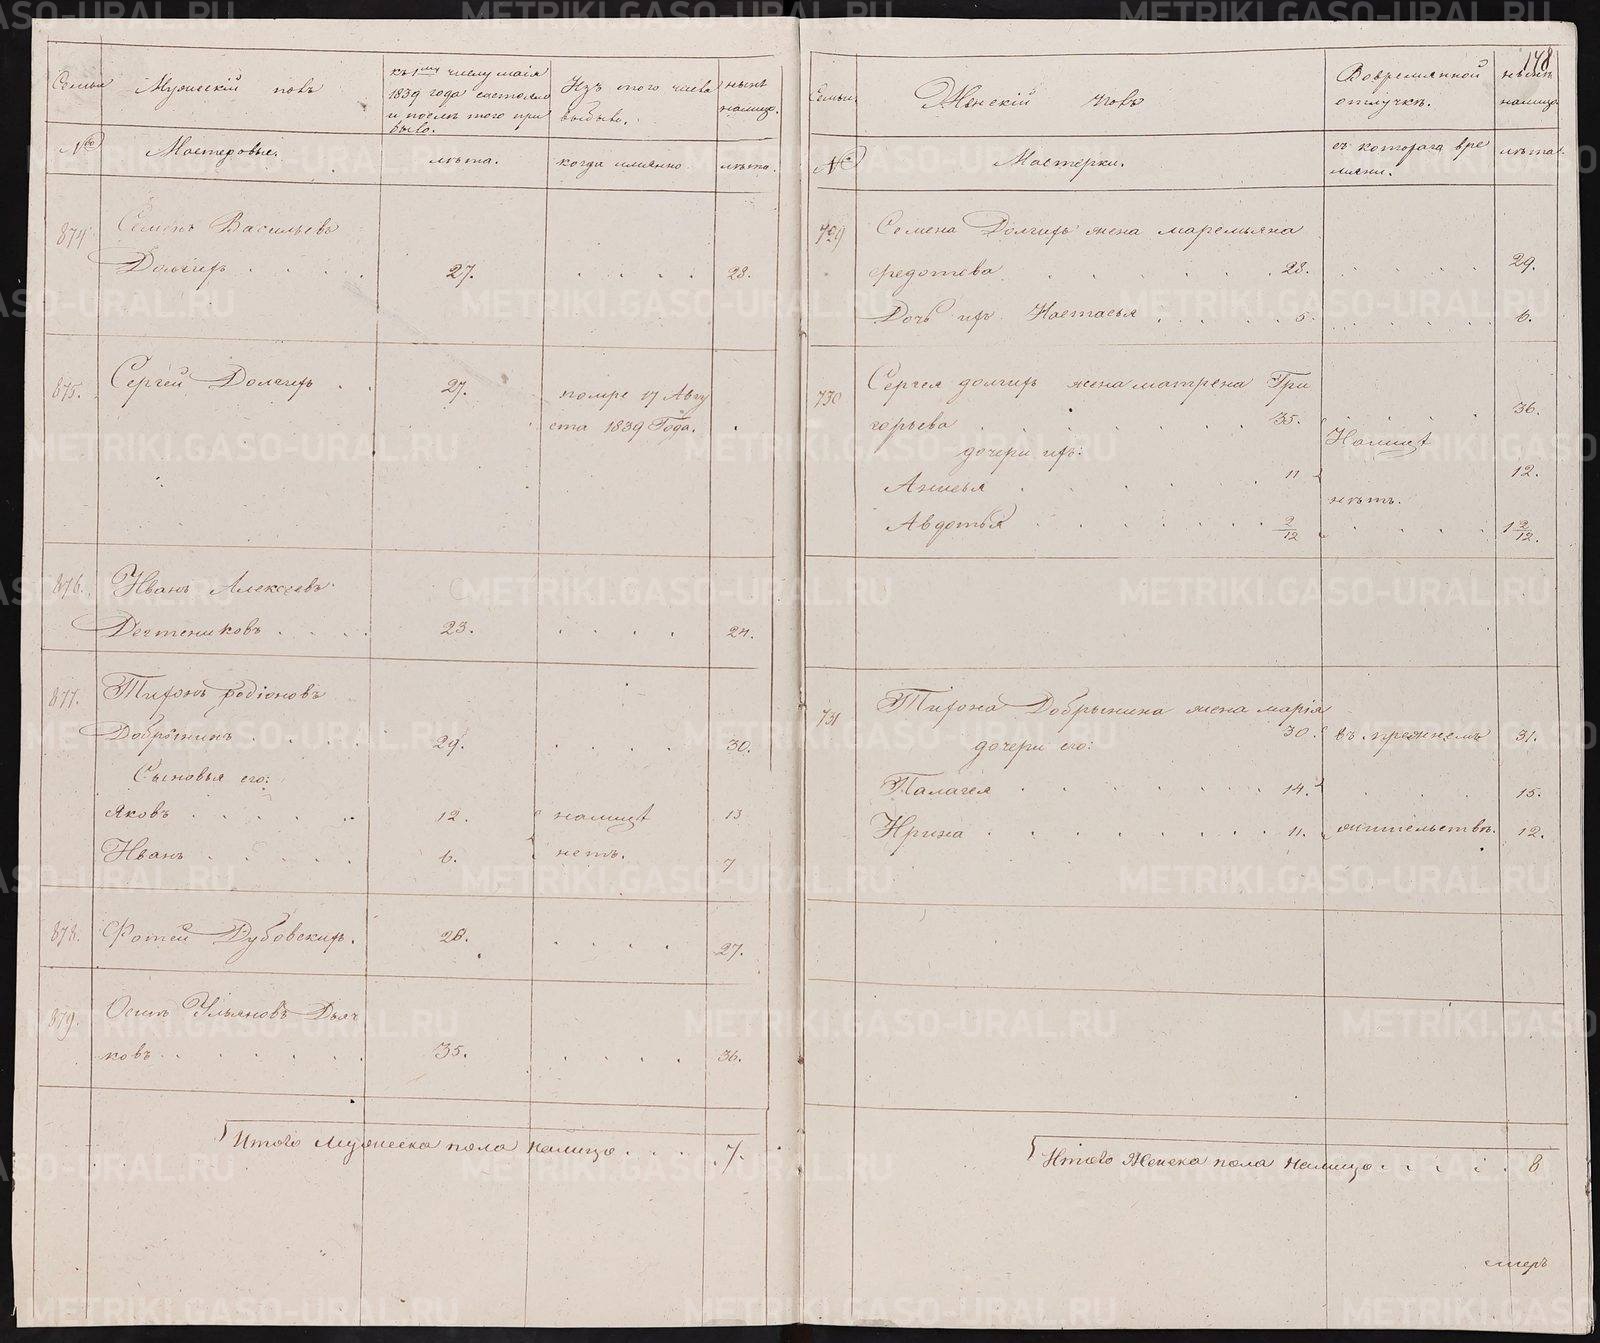 148
Семьи
Мужескій полъ
къ 1му числу маія
1839 года состояло
и послѣ того при
было.
Изъ того числа
выбыло.
нынѣ
налицо.
№
Мастеровые.
лѣта.
когда имянно
лѣта.
874
Семенъ Васильевъ
Долгихъ . . . . 27. . . . . 28.
875.
Сергей Долгихъ . . 27.
помре 17 Авгу
ста 1839 Года.
876.
Иванъ Алексеевъ
Дегтениковъ . . . . 23. . . . . 24.
877.
Тихонъ родіоновъ
Добрынинъ . . . . . 29. . . . . 30.
Сыновья его:
Яковъ . . . . . 12. налицѣ 13
Иванъ . . . . . 6. нетъ. 7
878.
Фотей Дубовскихъ. 26. . . . . 27.
879.
Осипъ Ульяновъ Дьяч
ковъ . . . . . . 35. . . . . 36.
Итого Мужеска пола налицо . . . . 7.
Семьи
Женскій полъ
Вовремянной
отлучкѣ.
нынѣ
налицо
№
Мастерки.
съ котораго вре
мяни.
лѣта.
729
Семена Долгихъ жена маремьяна
федотова . . . . . . 28. . . . . 29.
Дочь ихъ Настасья . . . . . 5. . . . . . 6.
730
Сергея долгихъ жена матрена Гри
горьева . . . . . . 35. . . . . 36.
дочери ихъ:
Налицѣ
Анисья . . . . . 11 12.
нѣтъ.
Авдотья . . . . . . . 2/12 . . . . . 1 2/12.
731
Тихона Добрынина жена марія
30. въ прежнемъ 31.
дочери его:
Палагея . . . . . . . 14. . . 15.
Ирина . . . . . . . . 11. жительствѣ. 12.
Итого Женска пола налицо . . . . . 8
METRIKI.GASO-URAL.RU